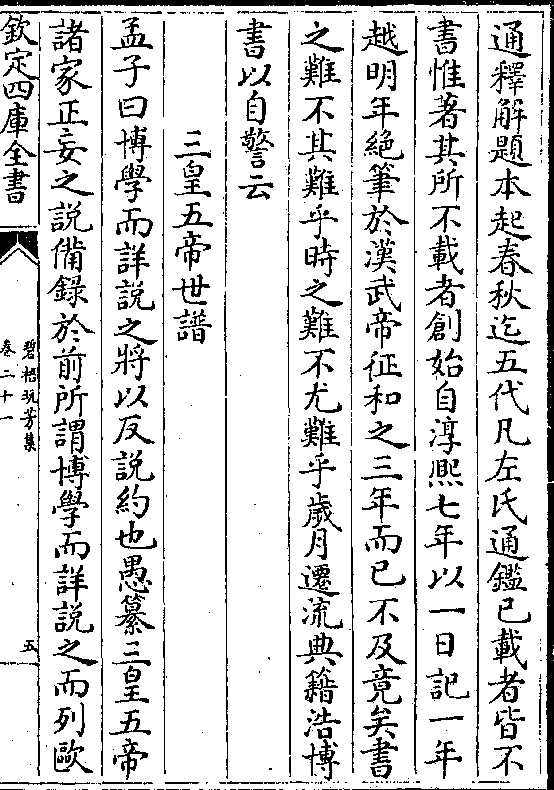 通釋解題本起春秋迄五代凡左氏通鑑已載者皆不
書惟著其所不載者創始自淳熙七年以一日記一年
越明年絶筆於漢武帝征和之三年而已不及竟矣書
之難不其難乎時之難不尤難乎歲月遷流典籍浩博
書以自警云
三皇五帝世譜
孟子曰博學而詳說之將以反說約也愚纂三皇五帝
諸家正妄之說備錄於前所謂博學而詳說之而列歐
欽定四庫全書
碧梧玩芳集
卷二十一
五